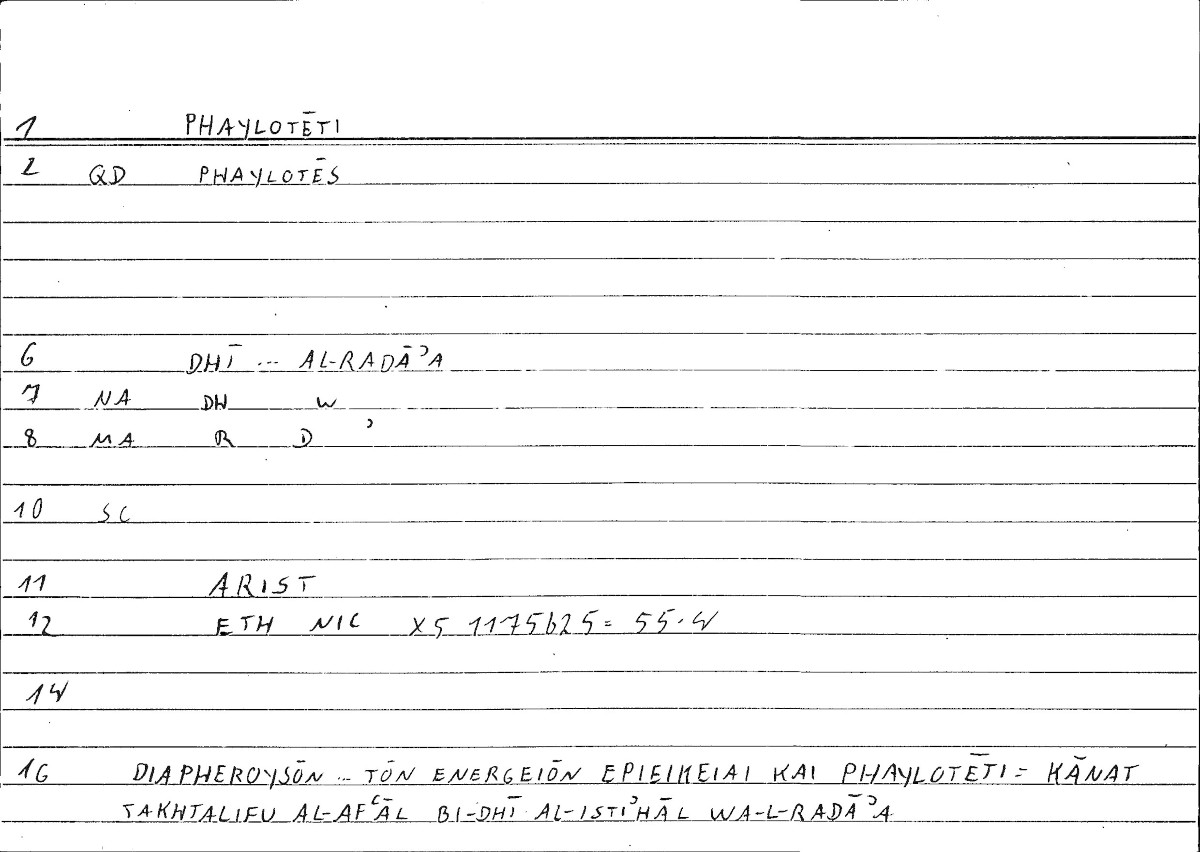 1 PHAYLOTĒTI
2 QD PHAYLOTĒS
6 DHĪ ... AL-RADĀʾA
7 NA DH W
8 MA R D ʾ
10 SC
11 ARIST
12 ETH NIC X5 1175b25 = 55.4
14
16 DIAPHEROYSŌN ... TŌN ENERGEIŌN EPIEIKEIAI KAI PHAYLOTĒTI = KĀNAT
TAKHTALIFU AL-AFʿĀL BI-DHĪ AL-ISTIʾHĀL WA-L-RADĀʾA